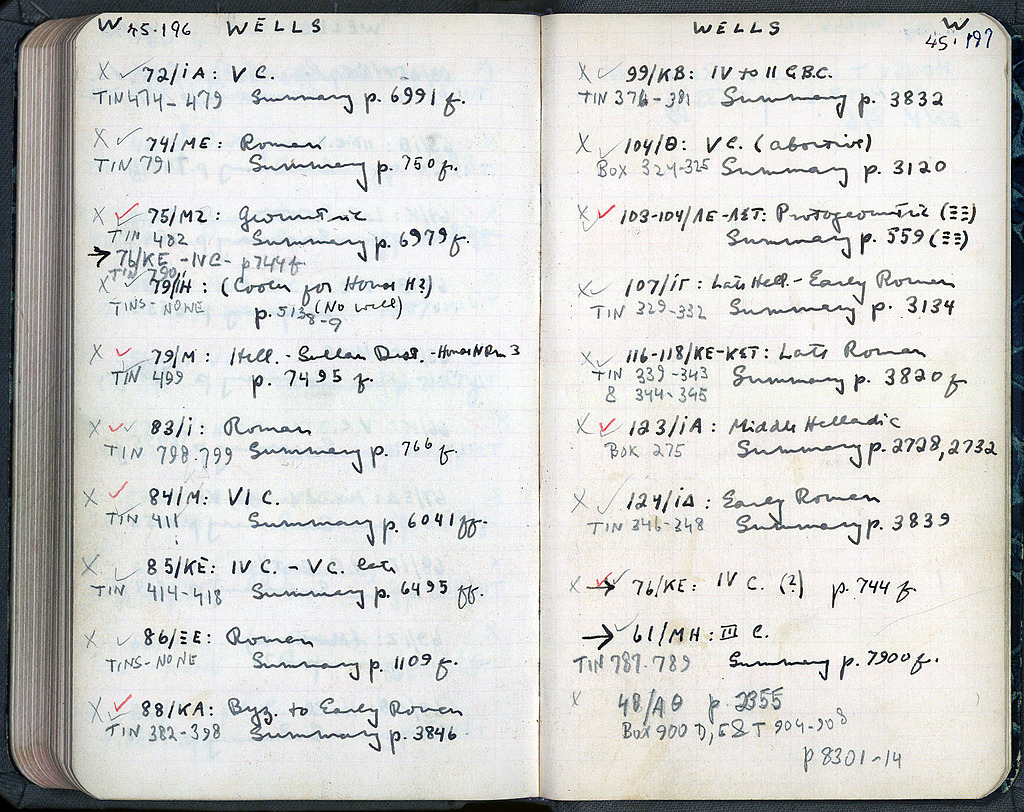 W 45.196 WELLS
X ✓ 72/IA: V C.
TIN 474-479 Summary p. 6991 f.
X ✓ 74/ME: Roman
TIN 791 Summary p. 750 f.
X ✓ 75/MZ: Geometric
TIN 482 Summary p. 6979 f.
→ 76/KE -IVC- p 744 f
TIN 790
X ✓ 79/IH: (Cooler for House H?)
TINS-NONE p. 5138-9 (No well)
X ✓ 79/M: Hell. - Sullan Dest. - House N Rm 3
TIN 499 p. 7495 f.
X ✓ 83/I: Roman
TIN 798, 799 Summary p. 766 f.
X ✓ 84/M: VI C.
TIN 411 Summary p. 6041 ff.
X ✓ 85/KE: IV C. - V C. late
TIN 414-418 Summary p. 6495 ff.
X ✓ 86/ΞE: Roman
TINS-NONE Summary p. 1109 f.
X ✓ 88/KA: Byz. to Early Roman
TIN 382-398 Summary p. 3846.
WELLS W 45.197
X ✓ 99/KB: IV to II C B.C.
TIN 376-381 Summary p. 3832
X ✓ 104/Θ: V C. (abortive)
Box 324-325 Summary p. 3120
X ✓ 103-104/ΛE-ΛΣT: Protogeometric (ΞΞ)
Summary p. 559 (ΞΞ)
X ✓ 107/IΓ: Late Hell. - Early Roman
TIN 329-332 Summary p. 3134
X ✓ 116-118/KE-KΣT: Late Roman
TIN 339-343 Summary p. 3820 f
& 344-345
X ✓ 123/IA: Middle Helladic
Box 275 Summary p. 2728, 2732
X ✓ 124/IΔ: Early Roman
TIN 346-348 Summary p. 3839
X ✓ → 76/KE: IV C. (?) p. 744 f
→ 61/MH: III C.
TIN 787-789 Summary p. 7900 f.
X 48/ΛΘ p. 2355
Box 900 D, E & T 904-908
p 8301-14